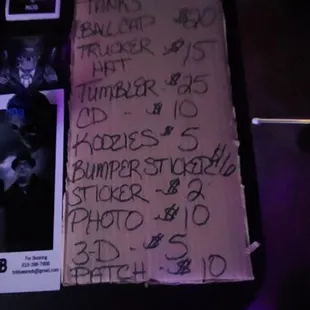 TANKS
BALLCAP $20
TRUCKER $15
HAT
TUMBLER - $25
CD - $10
KOOZIES $5
BUMPER STICKER $6
STICKER - $2
PHOTO - $10
3-D - $5
PATCH - $10
For Booking